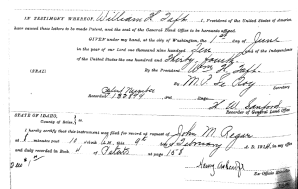 IN TESTIMONY WHEREOF, I, William H Taft, President of the United States of America
have caused these letters to be made Patent, and the seal of the General Land Office to be hereunto affixed.
GIVEN under my hand, at the city of Washington, the 1st day of June
in the year of our Lord one thousand nine hundred Ten and of the Independence
of the United States the one hundred and Thirty fourth
(SEAL)
By the President: Wm H. Taft
By M. P. Le Roy Secretary
Patent Number
Recorded
Page
H. W. Sanford
Recorder of the General Land Office
STATE OF IDAHO,
County of
I hereby certify that this instrument was filed for record at request of John M. Regan
at minutes past 10 o'clock A.M. this 9th day of February A. D. 19 in my office
and duly recorded in Book 4 of Patents at page 158
Ex-Officio Recorder